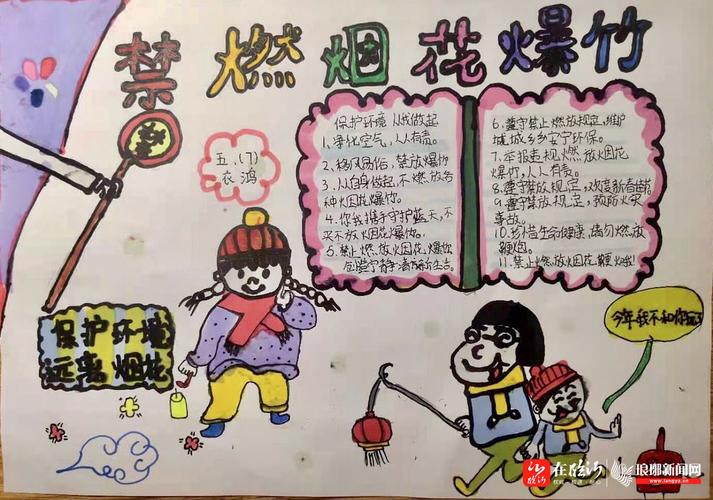 禁燃烟花爆竹
五.(7)
衣鸿
保护环境 从我做起
1、净化空气,人人有责。
2、移风易俗,禁放爆竹
3、从自身做起,不燃放各
种烟花爆竹。
4、你我携手守护蓝天,不
买不放烟花爆竹。
5、禁止燃放烟花爆竹
6、遵守禁止燃放规定,维护
城乡安宁环保。
7、举报违规燃放烟花
爆竹,人人有责。
8、遵守禁放规定,欢度新春佳节
9、遵守禁放规定,预防火灾
事故。
10、珍惜生命健康,请勿燃放
鞭炮。
11、禁止燃放烟花鞭炮
保护环境
远离烟花
今年我不和你玩了
在临沂
琅琊新闻网
www.langya.cn